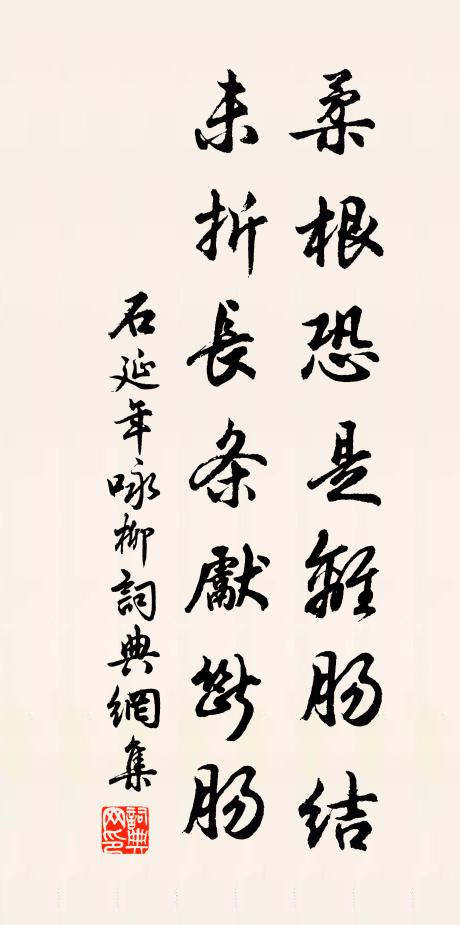 柔根恐是離腸結
未折長条獻斷腸
石延年咏柳詞典網集
詞典网印